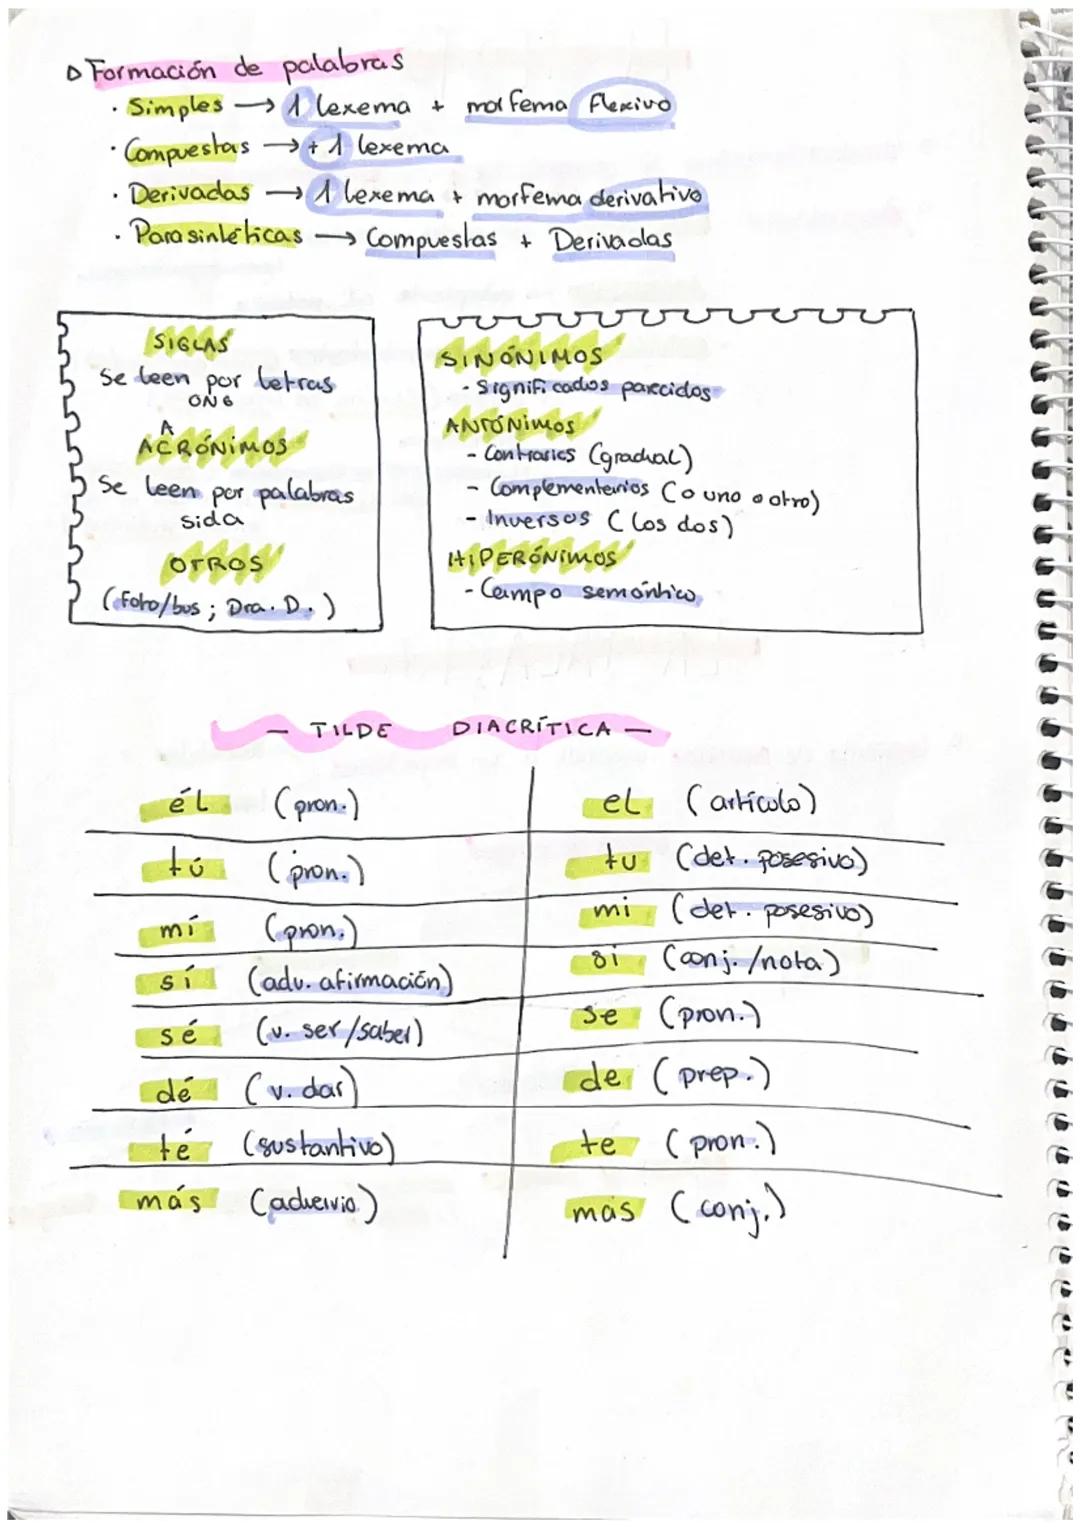 Formación de palabras
· Simples → 1 lexema + morfema flexivo
· Compuestas → + 1 lexema
· Derivadas → 1 lexema + morfema derivativo
· Parasintéticas → Compuestas + Derivadas
SIGLAS
Se leen por letras
ONG
A
ACRÓNIMOS
Se leen por palabras
sida
OTROS
(foto/bus ; Dra. D. )
SINÓNIMOS
- Significados parecidos
ANTÓNIMOS
- Contrarios (gradual)
- Complementarios (o uno o otro)
- Inversos (los dos)
HIPERÓNIMOS
- Campo semántico
— TILDE DIACRÍTICA —
él (pron.) el (artículo)
tú (pron.) tu (det. posesivo)
mí (pron.) mi (det. posesivo)
sí (adv. afirmación) si (conj./nota)
sé (v. ser/saber) se (pron.)
dé (v. dar) de (prep.)
té (sustantivo) te (pron.)
más (advervio) mas (conj.)